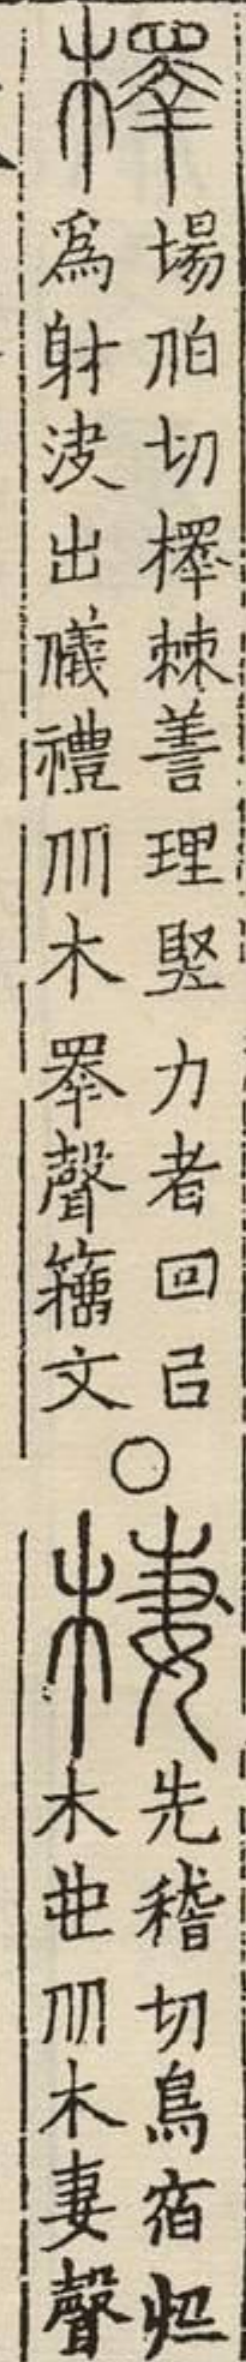 檡
場伯切檡棘善理堅力者回㠯
為射決出儀禮从木睪聲籀文
○
棲
先稽切鳥宿於
木也从木妻聲